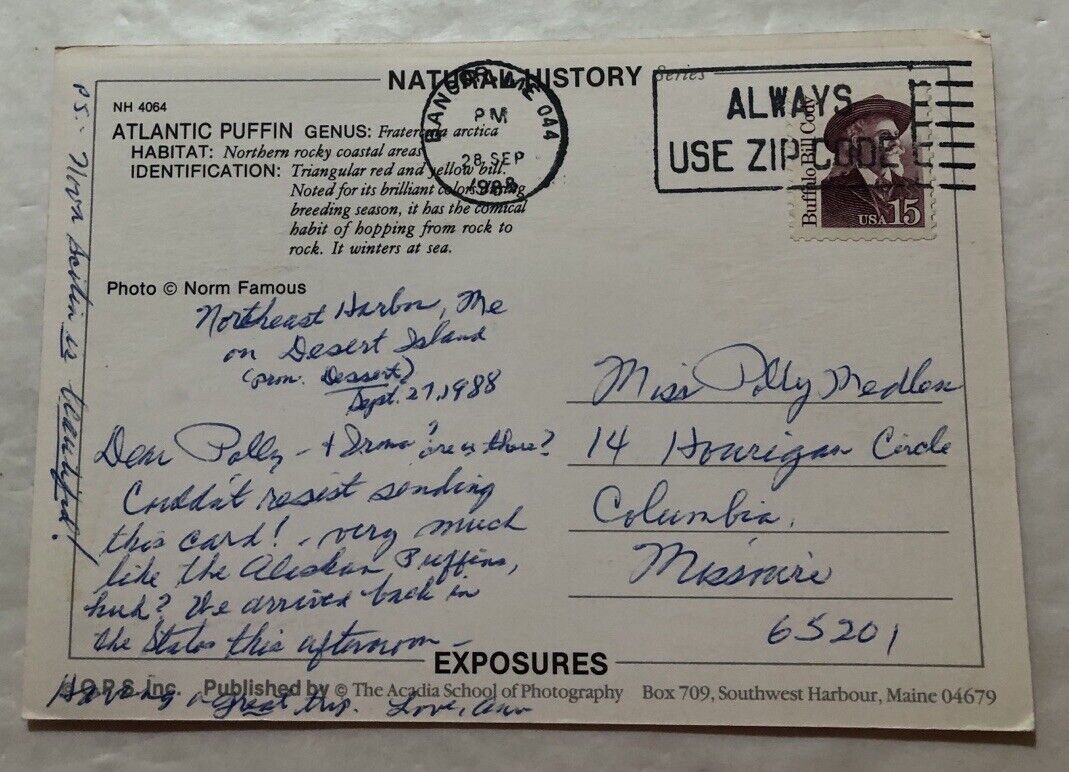 NATURAL HISTORY Series
NH 4064
ATLANTIC PUFFIN GENUS: Fratercula arctica
HABITAT: Northern rocky coastal areas
IDENTIFICATION: Triangular red and yellow bill.
Noted for its brilliant colors during
breeding season, it has the comical
habit of hopping from rock to
rock. It winters at sea.
Photo © Norm Famous
BANGOR, ME 044
PM
28 SEP
1988
ALWAYS
USE ZIP CODE
Buffalo Bill Cody
USA 15
Northeast Harbor, Me
on Desert Island
(pron. Dessert)
Sept. 27, 1988
Dear Polly - + Irma? are u there?
Couldn't resist sending
this card! - very much
like the Alaskan Puffins,
huh? We arrived back in
the States this afternoon -
Having a great trip. Love, Ann
P.S. - Nova Scotia is beautiful!
Miss Polly
14 Hourigan Circle
Columbia,
Missouri
65201
EXPOSURES
Inc. Published by © The Acadia School of Photography Box 709, Southwest Harbour, Maine 04679